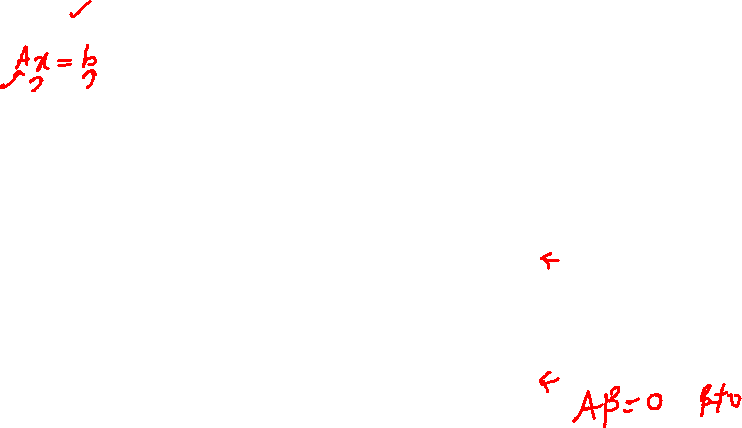 Ax = b
Aβ = 0 β ≠ 0